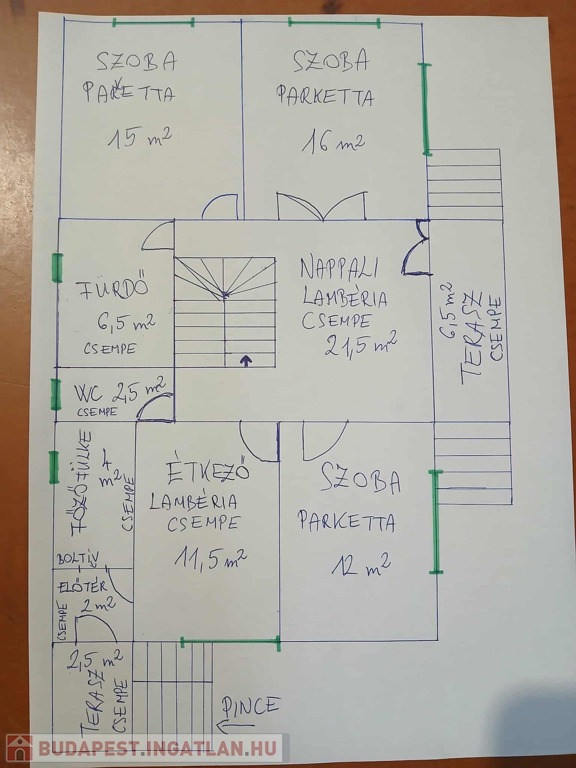 SZOBA
PARKETTA
15 m²
SZOBA
PARKETTA
16 m²
FÜRDŐ
6,5 m²
CSEMPE
NAPPALI
LAMBÉRIA
CSEMPE
21,5 m²
6,5 m²
TERASZ
CSEMPE
WC 2,5 m²
CSEMPE
FŐZŐFÜLKE
4 m²
CSEMPE
BOLTÍV
ÉTKEZŐ
LAMBÉRIA
CSEMPE
11,5 m²
SZOBA
PARKETTA
12 m²
ELŐTÉR
2 m²
CSEMPE
2,5 m²
TERASZ
CSEMPE
PINCE
BUDAPEST.INGATLAN.HU